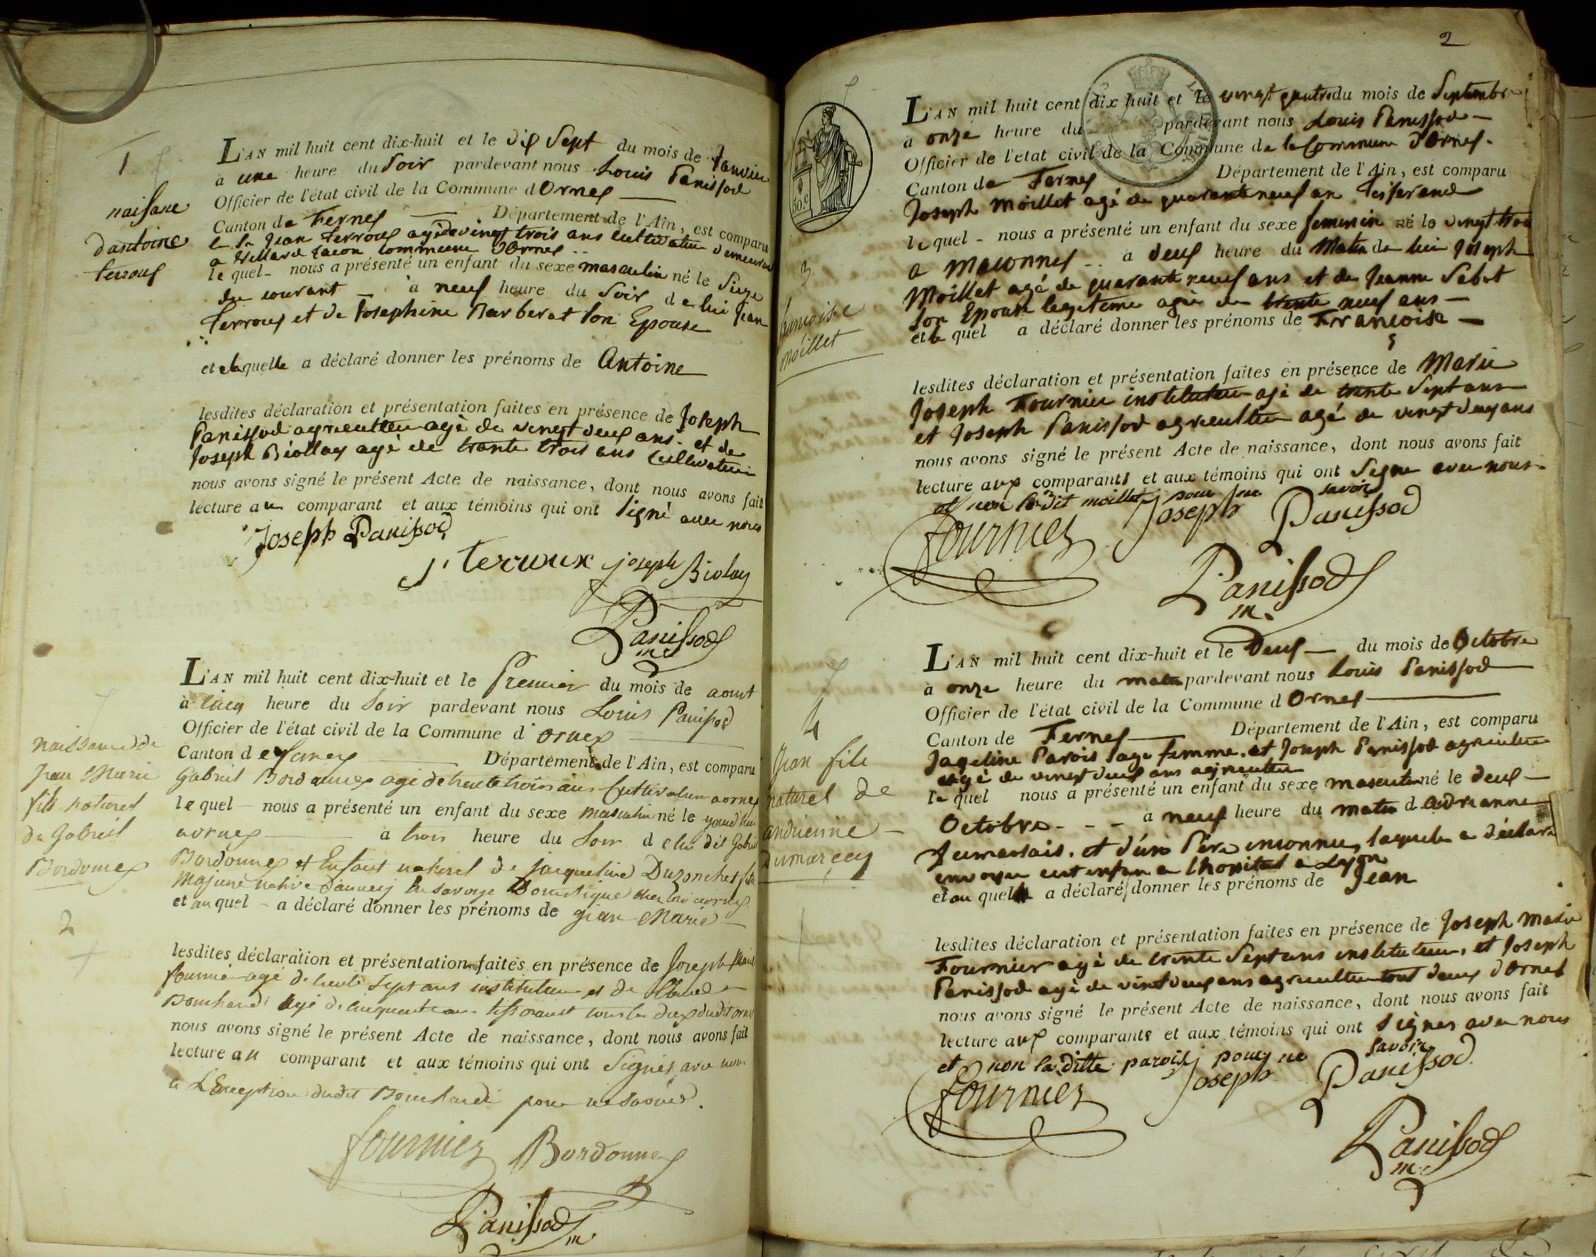 1
naissance
d'antoine
terroux
L'AN mil huit cent dix-huit et le dix Sept du mois de Janvier
à une heure du Soir pardevant nous Louis Panissod
Officier de l'état civil de la Commune d'Ornex
Canton de Fernex Département de l'Ain, est comparu
le Sr Jean Terroux agé de vingt trois ans cultivateur demeurant
a Villard Tacon Commune d'Ornex
lequel nous a présenté un enfant du sexe masculin né le Sieze
du courant à neuf heure du Soir de lui Jean
Terroux et de Josephine Barberat Son Epouse
et auquelle a déclaré donner les prénoms de Antoine
lesdites déclaration et présentation faites en présence de Joseph
Panissod agriculteur agé de vingt deux ans et de
Joseph Biollay agé de trante trois ans Cultivateur
nous avons signé le présent Acte de naissance, dont nous avons fait
lecture au comparant et aux témoins qui ont Signé avec nous
Joseph Panissod
j. terroux joseph Biolay
Panissod
m.
naissance de
Jean Marie
fils naturel
de Gabriel
Bordonnex
2
L'AN mil huit cent dix-huit et le Premier du mois de aoust
à cinq heure du Soir pardevant nous Louis Panissod
Officier de l'état civil de la Commune d'ornex
Canton de fernex Département de l'Ain, est comparu
Gabriel Bordonnex age de trente trois ans Cultivateur a ornex
lequel nous a présenté un enfant du sexe masculin né le
a ornex à trois heure du Soir de lui dit Gabriel
Bordonnex et Enfant naturel de Jacqueline Duzonchet fille
majeure native d'annecy en Savoye Domestique chez lui a ornex
et auquel a déclaré donner les prénoms de jean Marie
lesdites déclaration et présentation faites en présence de Joseph Marie
fournié agé de trente Sept ans instituteur et de Claude
Bouchardi agé de cinquante ans tisserant tous les deux dudit ornex
nous avons signé le présent Acte de naissance, dont nous avons fait
lecture au comparant et aux témoins qui ont Signés avec nous
a L'Exception dudit Bouchardi pour ne Savoir.
fournier Bordonnex
Panissod
m.
2
3
francoise
moillet
L'AN mil huit cent dix huit et le vingt quatre du mois de Septembre
à onze heure du pardevant nous Louis Panissod
Officier de l'état civil de la Commune de la Commune d'Ornex.
Canton de Fernex Département de l'Ain, est comparu
Joseph Moillet agé de quarante neuf an Tisserand
lequel nous a présenté un enfant du sexe femenin né le vingt trois
a Maconnex à deux heure du Matin de lui Joseph
Moillet agé de quarante neuf ans et de Jeanne Sabot
Son Epouse legitime agée de trente neuf ans
et le quel a déclaré donner les prénoms de Francoise
lesdites déclaration et présentation faites en présence de Marie
Joseph Fournier instituteur agé de trente Sept ans
et Joseph Panissod agriculteur agé de vingt deux ans
nous avons signé le présent Acte de naissance, dont nous avons fait
lecture aux comparants et aux témoins qui ont Signe avec nous
et non le dit moillet pour ne savoir
fournier Joseph Panissod
Panissod
m.
4
Jean fils
naturel de
andrienne
Dumarcey
L'AN mil huit cent dix-huit et le Deux du mois de Octobre
à onze heure du matin pardevant nous Louis Panissod
Officier de l'état civil de la Commune d'Ornex
Canton de Fernex Département de l'Ain, est comparu
Jaqeline Parois sage femme, et Joseph Panissod agriculteur
agé de vingt deux ans agriculteur
le quel nous a présenté un enfant du sexe masculin né le deux
Octobre à neuf heure du matin d'adrianne
Dumarsais, et d'un Père inconnu, laquelle a déclaré
envoyer cet enfan a lhopital a Lyon
et au quel a déclaré donner les prénoms de Jean
lesdites déclaration et présentation faites en présence de Joseph Marie
Fournier agé de trente Sept ans instituteur, et Joseph
Panissod agé de vint deux ans agriculteur tout deux d'Ornex
nous avons signé le présent Acte de naissance, dont nous avons fait
lecture aux comparants et aux témoins qui ont Signer avec nous
et non la ditte parois pour ne savoir
fournier Joseph Panissod
Panissod
m.